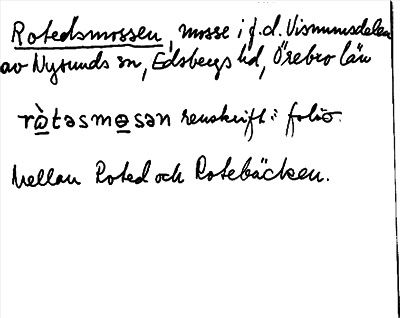 Rotedsmossen, mosse i f.d. Vismumsdelen
av Nysunds sn, Edsbergs hd, Örebro län
ràtəsmɵsən renskrift i folio.
Mellan Roted och Rotebäcken.